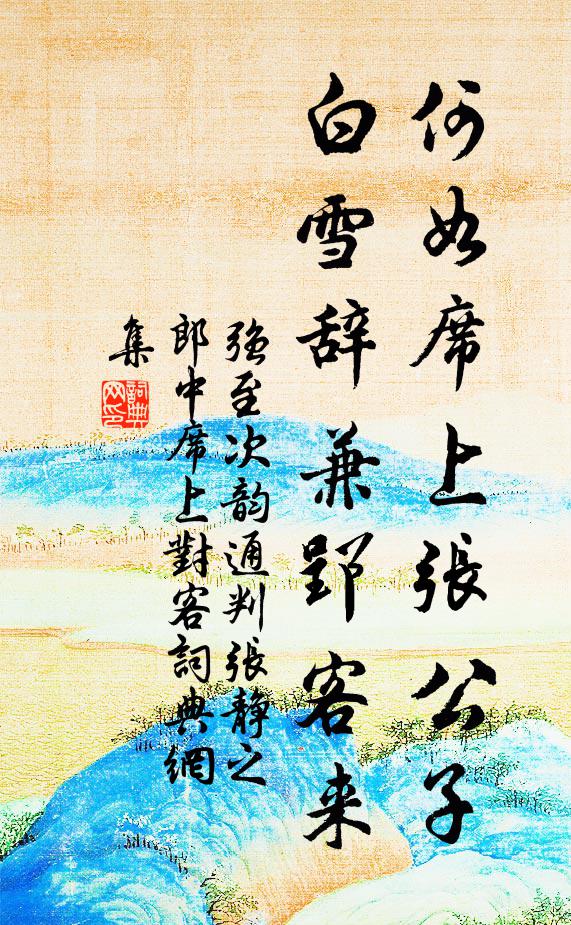 何如席上張公子
白雪辞兼郢客来
強至次韵通判張静之
郎中席上對客詞典網
集
詞典
网印